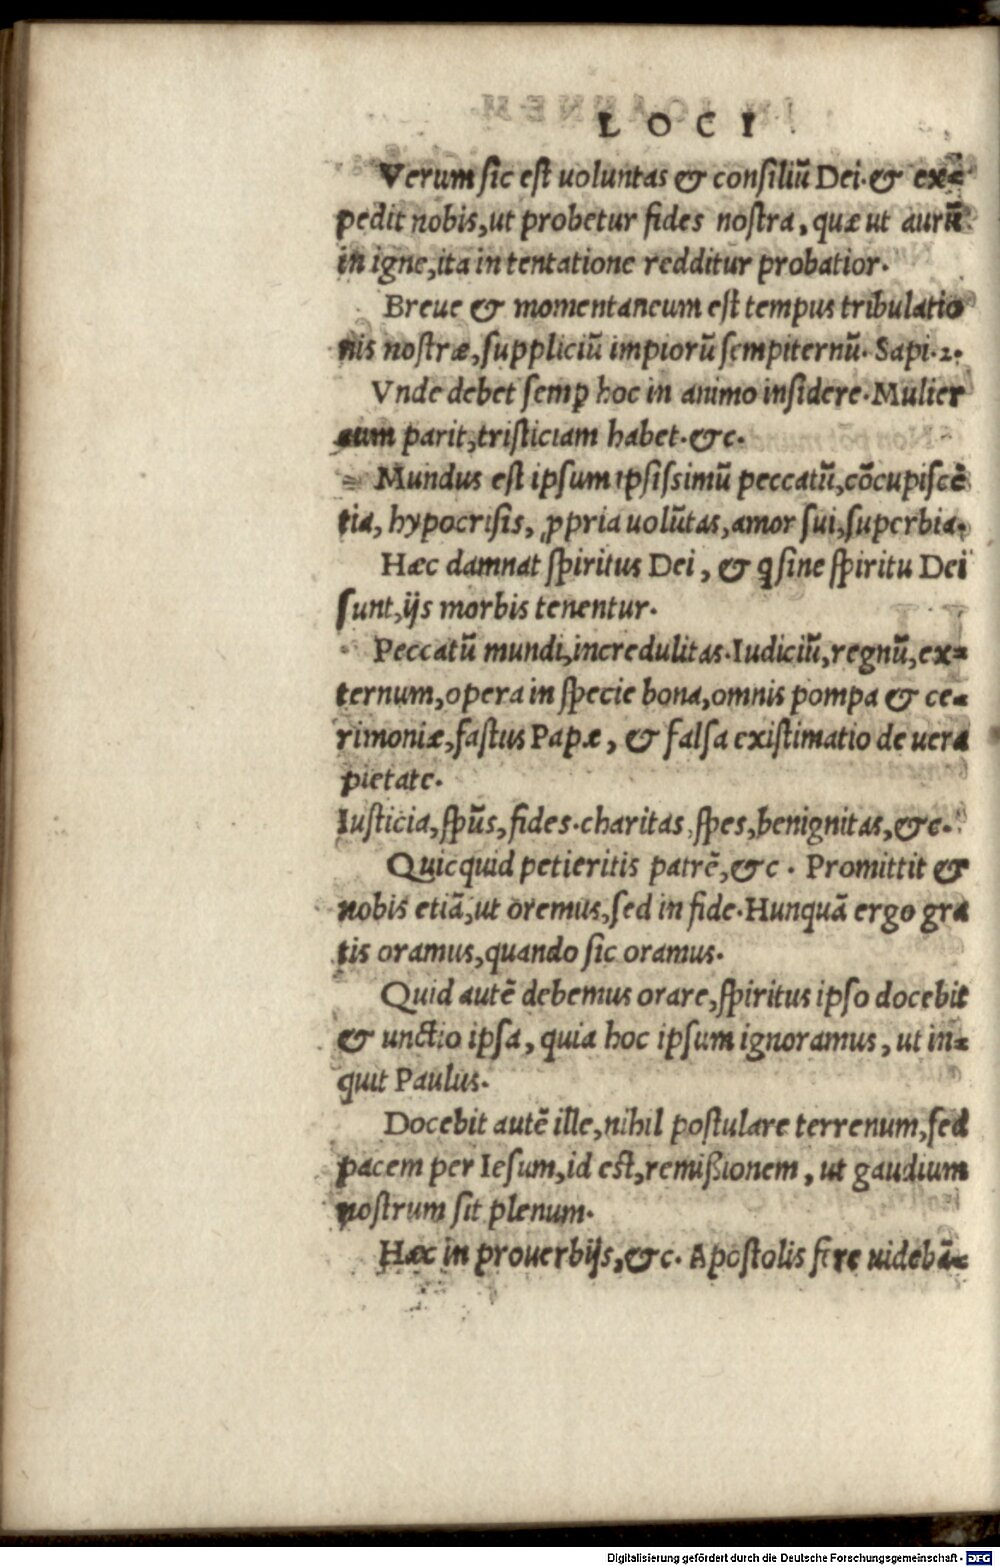 LOCI
Verum sic est uoluntas & consiliũ Dei. & ex-
pedit nobis, ut probetur fides nostra, quæ ut aurũ
in igne, ita in tentatione redditur probatior.
Breue & momentaneum est tempus tribulatio
nis nostræ, suppliciũ impiorũ sempiternũ. Sapi. 2.
Vnde debet semꝑ hoc in animo insidere. Mulier
cum parit, tristiciam habet. &c.
Mundus est ipsum ipsissimũ peccatũ, cõcupiscẽ
tia, hypocrisis, ꝓpria uolũtas, amor sui, superbia.
Hæc damnat spiritus Dei, & ꝗ sine spiritu Dei
sunt, ijs morbis tenentur.
Peccatũ mundi, incredulitas. Iudiciũ, regnũ, ex-
ternum, opera in specie bona, omnis pompa & ce-
rimoniæ, fastus Papæ, & falsa existimatio de uera
pietate.
Iusticia, spũs, fides. charitas, spes, benignitas, &c.
Quicquid petieritis patrẽ, &c. Promittit &
nobis etiã, ut oremus, sed in fide. Hunquã ergo gra
tis oramus, quando sic oramus.
Quid autẽ debemus orare, spiritus ipso docebit
& unctio ipsa, quia hoc ipsum ignoramus, ut in-
quit Paulus.
Docebit autẽ ille, nihil postulare terrenum, sed
pacem per Iesum, id est, remißionem, ut gaudium
nostrum sit plenum.
Hæc in prouerbijs, &c. Apostolis fere uidebã-
Digitalisierung gefördert durch die Deutsche Forschungsgemeinschaft - DFG